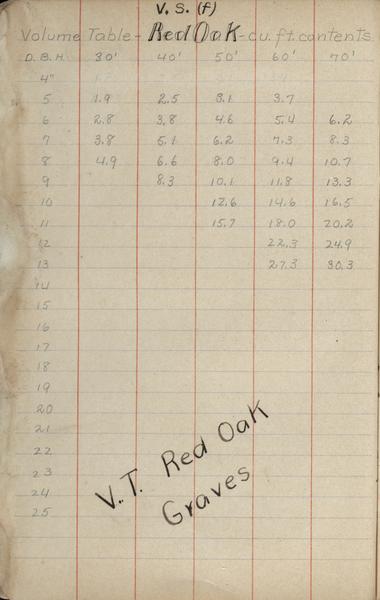 V. S. (f)
Volume Table - Red Oak - cu. ft. contents
D. B. H. 30' 40' 50' 60' 70'
4"
5 1.9 2.5 3.1 3.7
6 2.8 3.8 4.6 5.4 6.2
7 3.8 5.1 6.2 7.3 8.3
8 4.9 6.6 8.0 9.4 10.7
9 8.3 10.1 11.8 13.3
10 12.6 14.6 16.5
11 15.7 18.0 20.2
12 22.3 24.9
13 27.3 30.3
14
15
16
17
18
19
20
21
22
23
24
25
V.T. Red Oak
Graves